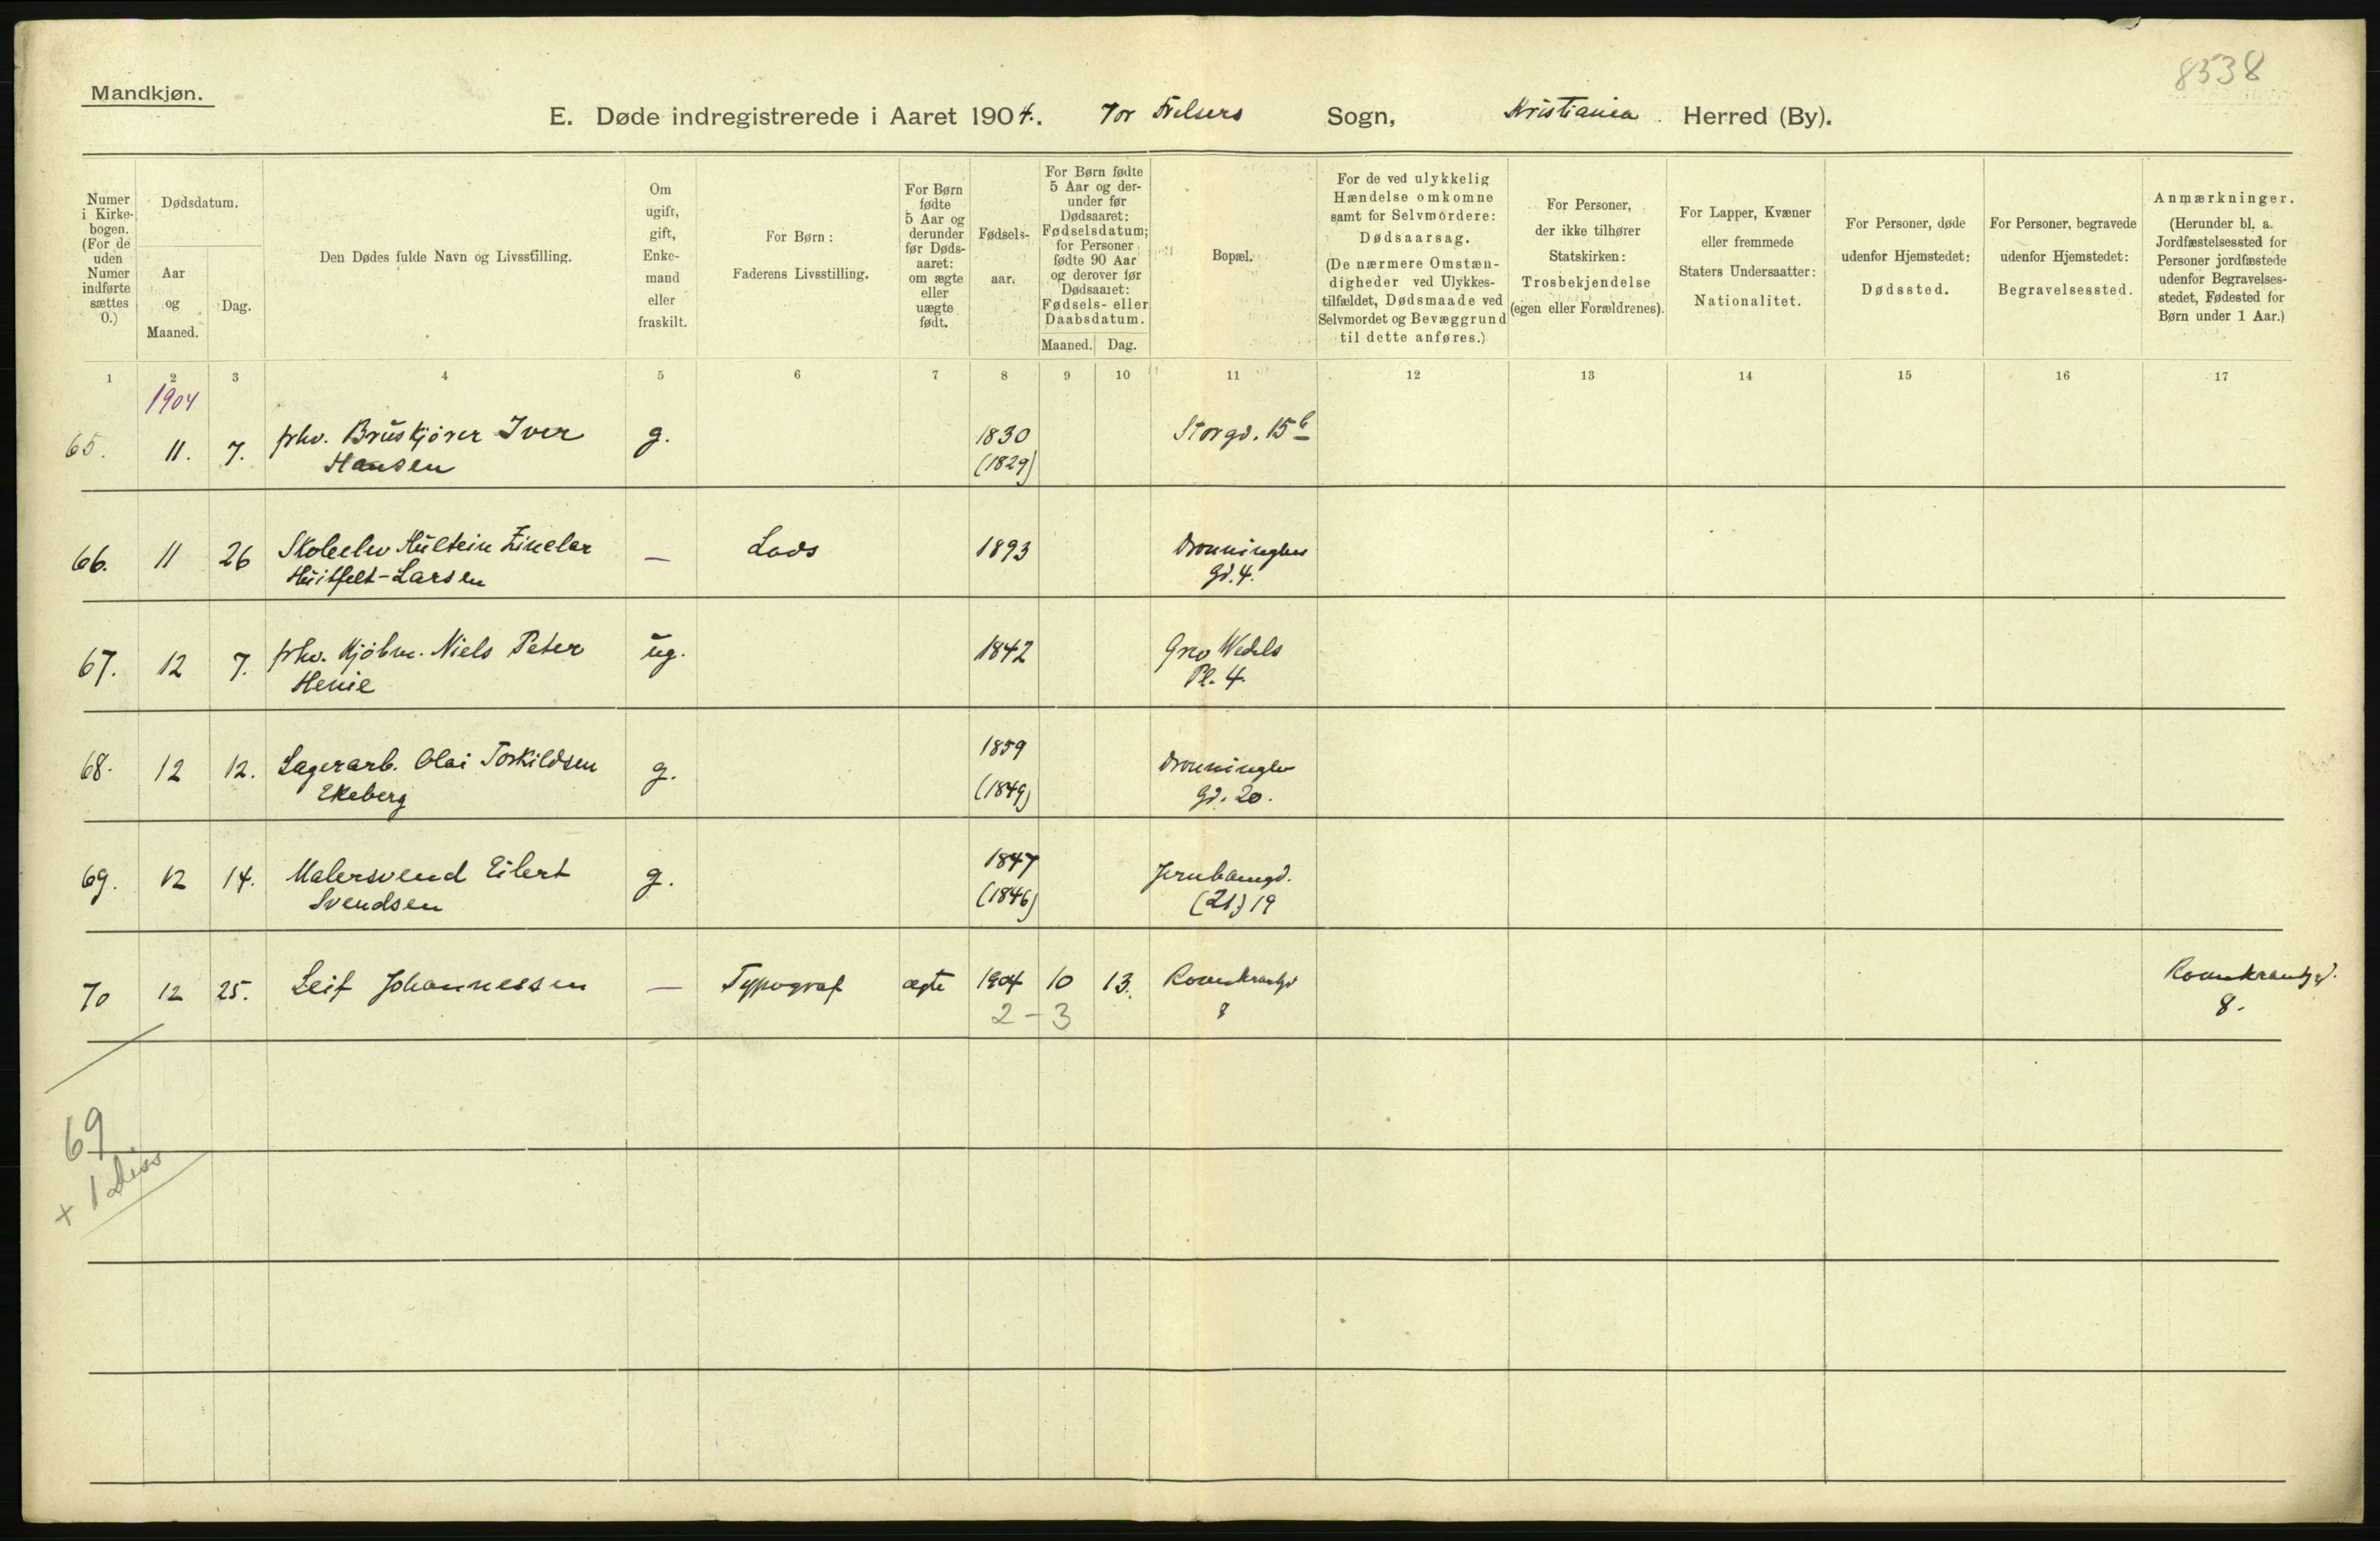 8538
Mandkjøn.
E. Døde indregistrerede i Aaret 1904. Vor Frelsers Sogn, Kristiania Herred (By).
Numer i Kirkebogen. (For de uden Numer indførte sættes 0.)
Dødsdatum.
Aar og Maaned.
Dag.
Den Dødes fulde Navn og Livsstilling.
Om ugift, gift, Enkemand eller fraskilt.
For Børn: Faderens Livsstilling.
For Børn fødte 5 Aar og derunder før Dødsaaret: om ægte eller uægte født.
Fødselsaar.
For Børn fødte 5 Aar og derunder før Dødsaaret: Fødselsdatum; for Personer fødte 90 Aar og derover før Dødsaaret: Fødsels- eller Daabsdatum.
Maaned. Dag.
Bopæl.
For de ved ulykkelig Hændelse omkomne samt for Selvmordere: Dødsaarsag. (De nærmere Omstændigheder ved Ulykkestilfældet, Dødsmaade ved Selvmordet og Bevæggrund til dette anføres.)
For Personer, der ikke tilhører Statskirken: Trosbekjendelse (egen eller Forældrenes).
For Lapper, Kvæner eller fremmede Staters Undersaatter: Nationalitet.
For Personer, døde udenfor Hjemstedet: Dødssted.
For Personer, begravede udenfor Hjemstedet: Begravelsessted.
Anmærkninger. (Herunder bl. a. Jordfæstelsessted for Personer jordfæstede udenfor Begravelsesstedet, Fødested for Børn under 1 Aar.)
1 2 3 4 5 6 7 8 9 10 11 12 13 14 15 16 17
1904
65. 11. 7. fhv. Bruskjører Iver g. 1830 Storgd. 15b
Hansen (1829)
66. 11 26 Skoleelev Einelar — Lods 1893 Dronningens
Huitfelt-Larsen Gd. 4.
67. 12 7. fhv. Kjøbm. Niels Peter ug. 1842 Grev Wedels
Henie Pl. 4.
68. 12 12. Lagerarb. Olai Torkildsen g. 1859 Dronningb
Ekeberg (1849) Gd. 20.
69. 12 14. Malersvend Eilert g. 1847 Jernbanegd.
Svendsen (1846) (21) 19
70 12 25. Leif Johannessen — Typograf ægte 1904 10 13. Rosenkrantzgd Rosenkrantzgd.
2 - 3 8 8.
69
+ 1 diss